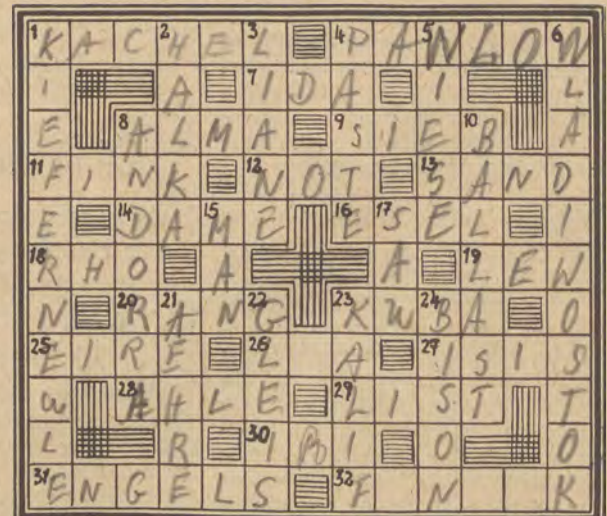 1K A C 2H E 3L 4P A 5N L O 6W
I A 7I D A I L
E 8A L M A 9S I E 10B A
11F I N K 12N O T 13S A N D
E 14D A 15M E 16E 17S E L I
18R H O A A 19L E W
N 20R 21A N 22G 23K W 24B A O
25E I R E 26L A 27I S I S
W 28A H L E 29L I S T T
L R 30I I O O
31E N G E L S 32F N K